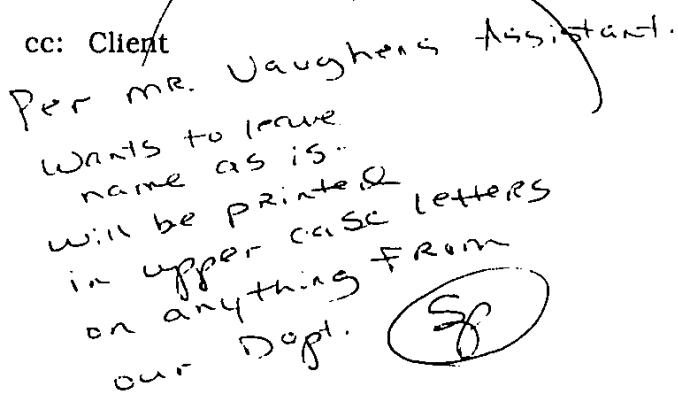 cc: Client
Per MR. Vaughens Assistant.
wants to leave
name as is.
will be printed
in upper case letters
on anything FROM
our Dept.
SP